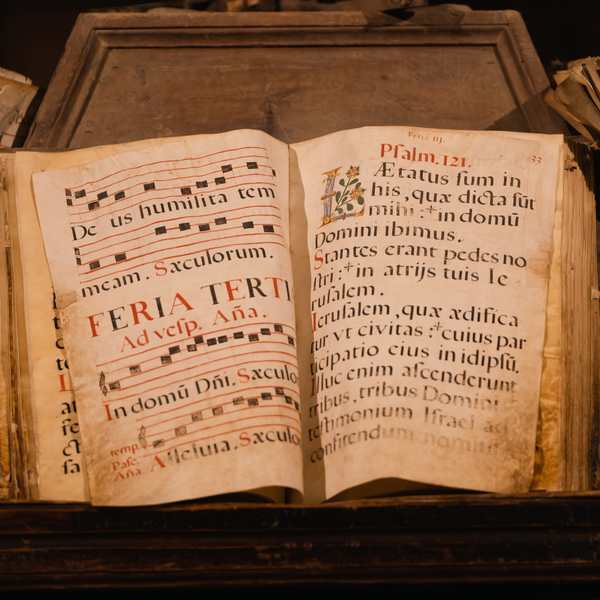 De us humilita tem
meam. Sæculorum.
FERIA TERTI
Ad vesp. Aña.
In domū Dñi. Sæculo
temp.
Pasc.
Aña. Alleluia. Sæculo
Feria iij.
Psalm. 121.
33
LÆtatus sum in
his, quæ dicta sūt
mihi :+ in domū
Domini ibimus.
Stantes erant pedes no
stri :+ in atrijs tuis Ie
rusalem.
Ierusalem, quæ ædifica
tur vt civitas :+ cuius par
ticipatio eius in idipsū.
Illuc enim ascenderunt
tribus, tribus Domini
testimonium Israel ad
confitendum nomini